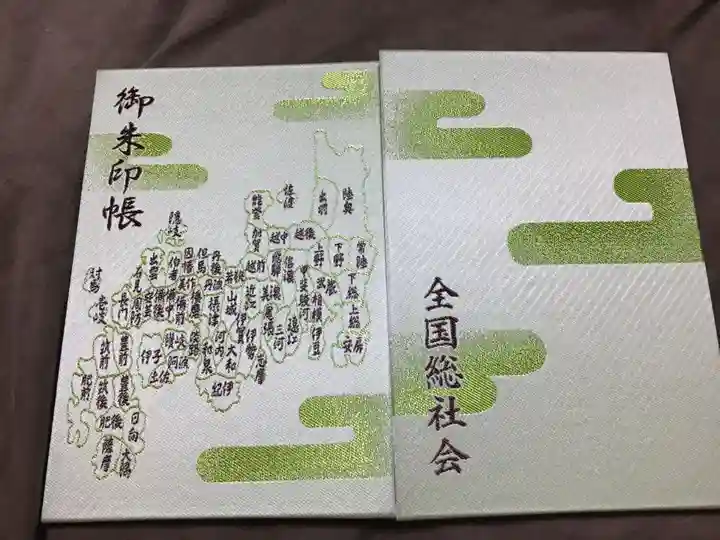 御朱印帳
陸奥
出羽
佐渡
能登
加賀
越中
越後
上野
下野
常陸
下総
上総
武蔵
相模
伊豆
駿河
甲斐
遠江
三河
尾張
美濃
飛騨
信濃
越前
若狭
近江
山城
伊賀
伊勢
志摩
大和
紀伊
河内
和泉
摂津
丹波
丹後
但馬
因幡
伯耆
隠岐
出雲
石見
美作
備前
備中
備後
安芸
周防
長門
淡路
阿波
讃岐
土佐
伊予
対馬
壱岐
筑前
筑後
豊前
豊後
肥前
肥後
日向
大隅
薩摩
全国総社会